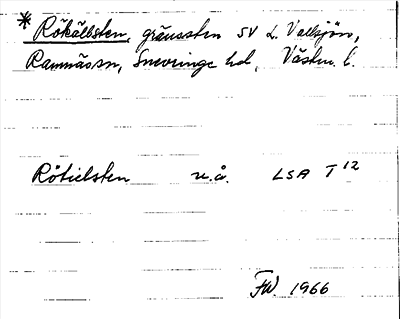 * Rökälbsten, gränssten SV L. Vallsjön,
Ramnäs sn, Snevringe hd, Västm. l.
Rötielsten u.å. LSA T 12
FW 1966